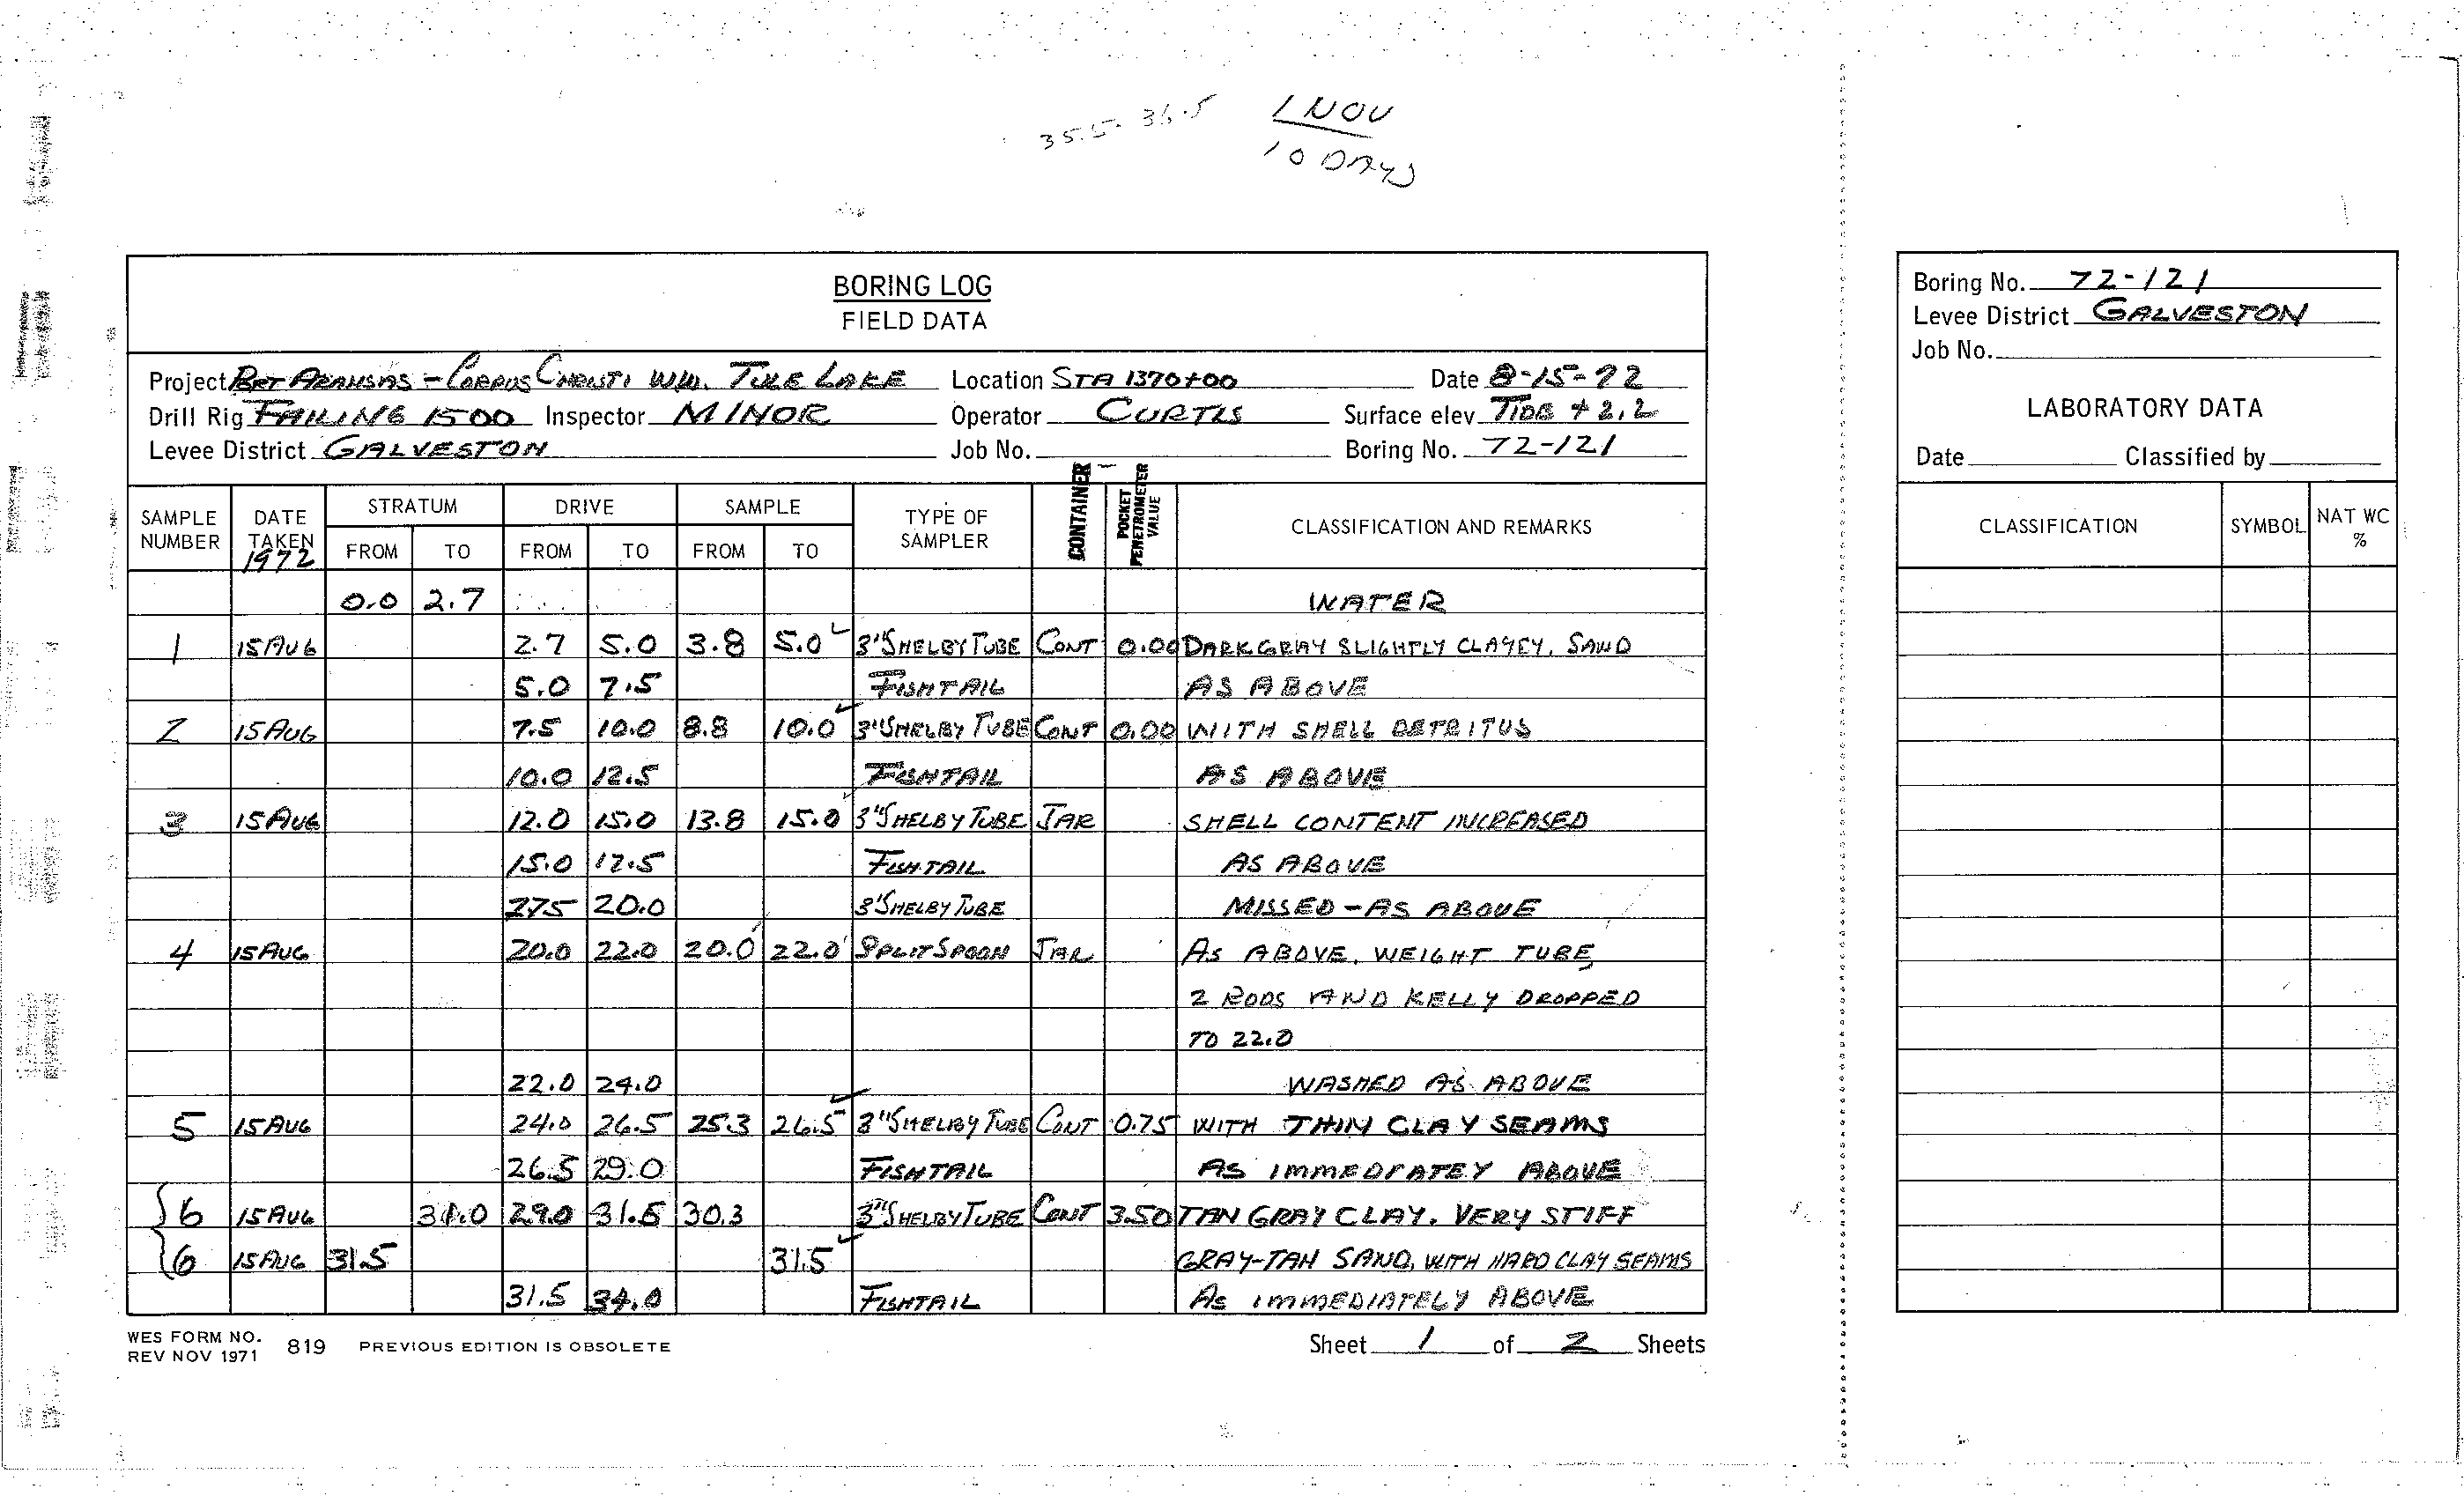 35.5- 36.5 1 NOV
10 DAYS
BORING LOG
FIELD DATA
Project PORT ARANSAS - CORPUS CHRISTI WW. TULE LAKE Location STA 1370+00 Date 8-15-72
Drill Rig FAILING 1500 Inspector MINOR Operator CURTIS Surface elev TIDE + 2.2
Levee District GALVESTON Job No. Boring No. 72-121
SAMPLE NUMBER DATE TAKEN 1972 STRATUM FROM TO DRIVE FROM TO SAMPLE FROM TO TYPE OF SAMPLER CONTAINER POCKET PENETROMETER VALUE CLASSIFICATION AND REMARKS
0.0 2.7 WATER
1 15 AUG 2.7 5.0 3.8 5.0 3" SHELBY TUBE CONT 0.00 DARK GRAY SLIGHTLY CLAYEY, SAND
5.0 7.5 FISHTAIL AS ABOVE
2 15 AUG 7.5 10.0 8.8 10.0 3" SHELBY TUBE CONT 0.00 WITH SHELL DETRITUS
10.0 12.5 FISHTAIL AS ABOVE
3 15 AUG 12.0 15.0 13.8 15.0 3" SHELBY TUBE JAR SHELL CONTENT INCREASED
15.0 17.5 FISHTAIL AS ABOVE
275 20.0 3" SHELBY TUBE MISSED - AS ABOVE
4 15 AUG 20.0 22.0 20.0 22.0 SPLIT SPOON JAR AS ABOVE, WEIGHT TUBE,
2 RODS AND KELLY DROPPED
TO 22.0
22.0 24.0 WASHED AS ABOVE
5 15 AUG 24.0 26.5 25.3 26.5 3" SHELBY TUBE CONT 0.75 WITH THIN CLAY SEAMS
26.5 29.0 FISHTAIL AS IMMEDIATEY ABOVE
6 15 AUG 31.0 29.0 31.5 30.3 3" SHELBY TUBE CONT 3.50 TAN GRAY CLAY. VERY STIFF
6 15 AUG 31.5 31.5 GRAY-TAN SAND, WITH HARD CLAY SEAMS
31.5 34.0 FISHTAIL AS IMMEDIATELY ABOVE
WES FORM NO. 819 PREVIOUS EDITION IS OBSOLETE
REV NOV 1971
Sheet 1 of 2 Sheets
Boring No. 72-121
Levee District GALVESTON
Job No.
LABORATORY DATA
Date Classified by
CLASSIFICATION SYMBOL NAT WC %